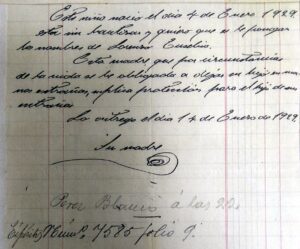 Este niño nació el día 4 de Enero 1929.
está sin bautizar y quiero que se le pongan
los nombres de Lorenzo Eusebio.
Esta madre que por circunstancias
de la vida se ve obligada a dejar su hijo en
manos extrañas, suplica protección para el hijo de sus
entrañas
Lo entrego el día 14 de Enero de 1929
Su madre
Perez Blanco á las 22
Expósito Núm. 7585 folio 9.